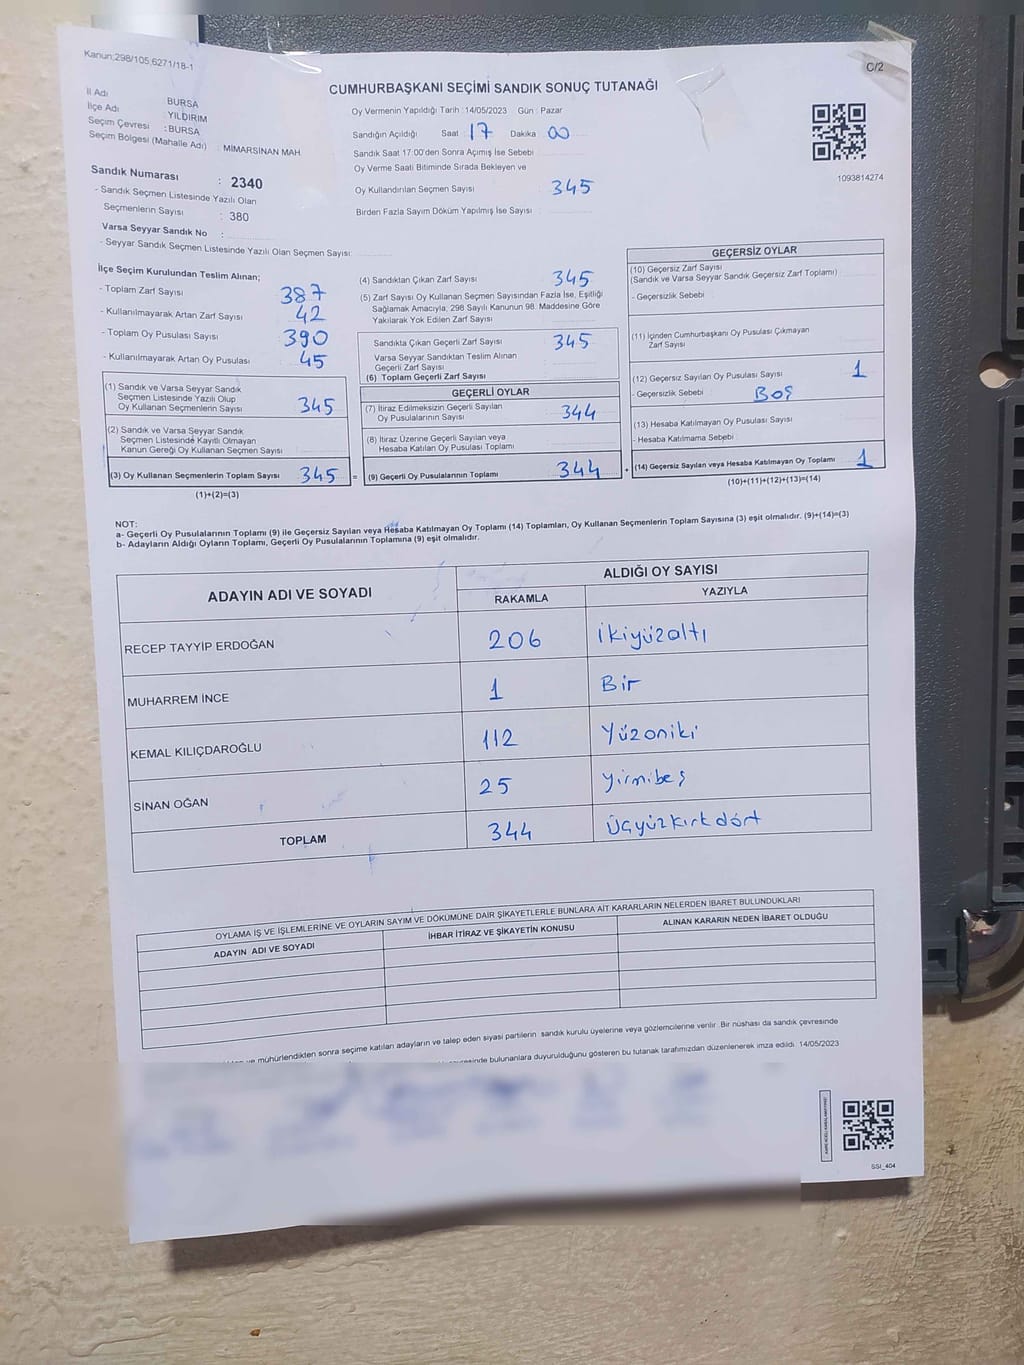 Kanun;298/105,6271/18-1
C/2
CUMHURBAŞKANI SEÇİMİ SANDIK SONUÇ TUTANAĞI
İl Adı BURSA
İlçe Adı : YILDIRIM
Seçim Çevresi : BURSA
Seçim Bölgesi (Mahalle Adı) : MİMARSİNAN MAH.
Oy Vermenin Yapıldığı Tarih :14/05/2023 Gün : Pazar
Sandığın Açıldığı Saat 17 Dakika 00
Sandık Saat 17:00'den Sonra Açımış İse Sebebi
Oy Verme Saati Bitiminde Sırada Bekleyen ve
Oy Kullandırılan Seçmen Sayısı 345
Birden Fazla Sayım Döküm Yapılmış İse Sayısı :
1093814274
Sandık Numarası : 2340
- Sandık Seçmen Listesinde Yazılı Olan
Seçmenlerin Sayısı : 380
Varsa Seyyar Sandık No :
- Seyyar Sandık Seçmen Listesinde Yazılı Olan Seçmen Sayısı:
İlçe Seçim Kurulundan Teslim Alınan;
- Toplam Zarf Sayısı 387
- Kullanılmayarak Artan Zarf Sayısı 42
- Toplam Oy Pusulası Sayısı 390
- Kullanılmayarak Artan Oy Pusulası 45
(1) Sandık ve Varsa Seyyar Sandık
Seçmen Listesinde Yazılı Olup
Oy Kullanan Seçmenlerin Sayısı 345
(2) Sandık ve Varsa Seyyar Sandık
Seçmen Listesinde Kayıtlı Olmayan
Kanun Gereği Oy Kullanan Seçmen Sayısı
(3) Oy Kullanan Seçmenlerin Toplam Sayısı 345
(1)+(2)=(3)
(4) Sandıktan Çıkan Zarf Sayısı 345
(5) Zarf Sayısı Oy Kullanan Seçmen Sayısından Fazla İse, Eşitliği
Sağlamak Amacıyla; 298 Sayılı Kanunun 98. Maddesine Göre
Yakılarak Yok Edilen Zarf Sayısı
Sandıkta Çıkan Geçerli Zarf Sayısı 345
Varsa Seyyar Sandıktan Teslim Alınan
Geçerli Zarf Sayısı
(6) Toplam Geçerli Zarf Sayısı
GEÇERLİ OYLAR
(7) İtiraz Edilmeksizin Geçerli Sayılan
Oy Pusulalarının Sayısı 344
(8) İtiraz Üzerine Geçerli Sayılan veya
Hesaba Katılan Oy Pusulası Toplamı
= (9) Geçerli Oy Pusulalarının Toplamı 344 +
GEÇERSİZ OYLAR
(10) Geçersiz Zarf Sayısı
(Sandık ve Varsa Seyyar Sandık Geçersiz Zarf Toplamı)
- Geçersizlik Sebebi
(11) İçinden Cumhurbaşkanı Oy Pusulası Çıkmayan
Zarf Sayısı
(12) Geçersiz Sayılan Oy Pusulası Sayısı 1
- Geçersizlik Sebebi Boş
(13) Hesaba Katılmayan Oy Pusulası Sayısı
- Hesaba Katılmama Sebebi
(14) Geçersiz Sayılan veya Hesaba Katılmayan Oy Toplamı 1
(10)+(11)+(12)+(13)=(14)
NOT:
a- Geçerli Oy Pusulalarının Toplamı (9) ile Geçersiz Sayılan veya Hesaba Katılmayan Oy Toplamı (14) Toplamları, Oy Kullanan Seçmenlerin Toplam Sayısına (3) eşit olmalıdır. (9)+(14)=(3)
b- Adayların Aldığı Oyların Toplamı, Geçerli Oy Pusulalarının Toplamına (9) eşit olmalıdır.
ADAYIN ADI VE SOYADI
ALDIĞI OY SAYISI
RAKAMLA YAZIYLA
RECEP TAYYİP ERDOĞAN 206 İkiyüzaltı
MUHARREM İNCE 1 Bir
KEMAL KILIÇDAROĞLU 112 Yüzoniki
SİNAN OĞAN 25 yirmibeş
TOPLAM 344 Üçyüzkırkdört
OYLAMA İŞ VE İŞLEMLERİNE VE OYLARIN SAYIM VE DÖKÜMÜNE DAİR ŞİKAYETLERLE BUNLARA AİT KARARLARIN NELERDEN İBARET BULUNDUKLARI
ADAYIN ADI VE SOYADI İHBAR İTİRAZ VE ŞİKAYETİN KONUSU ALINAN KARARIN NEDEN İBARET OLDUĞU
ve mühürlendikten sonra seçime katılan adayların ve talep eden siyasi partilerin sandık kurulu üyelerine veya gözlemcilerine verilir. Bir nüshası da sandık çevresinde
bulunanlara duyurulduğunu gösteren bu tutanak tarafımızdan düzenlenerek imza edildi. 14/05/2023
SSI_404